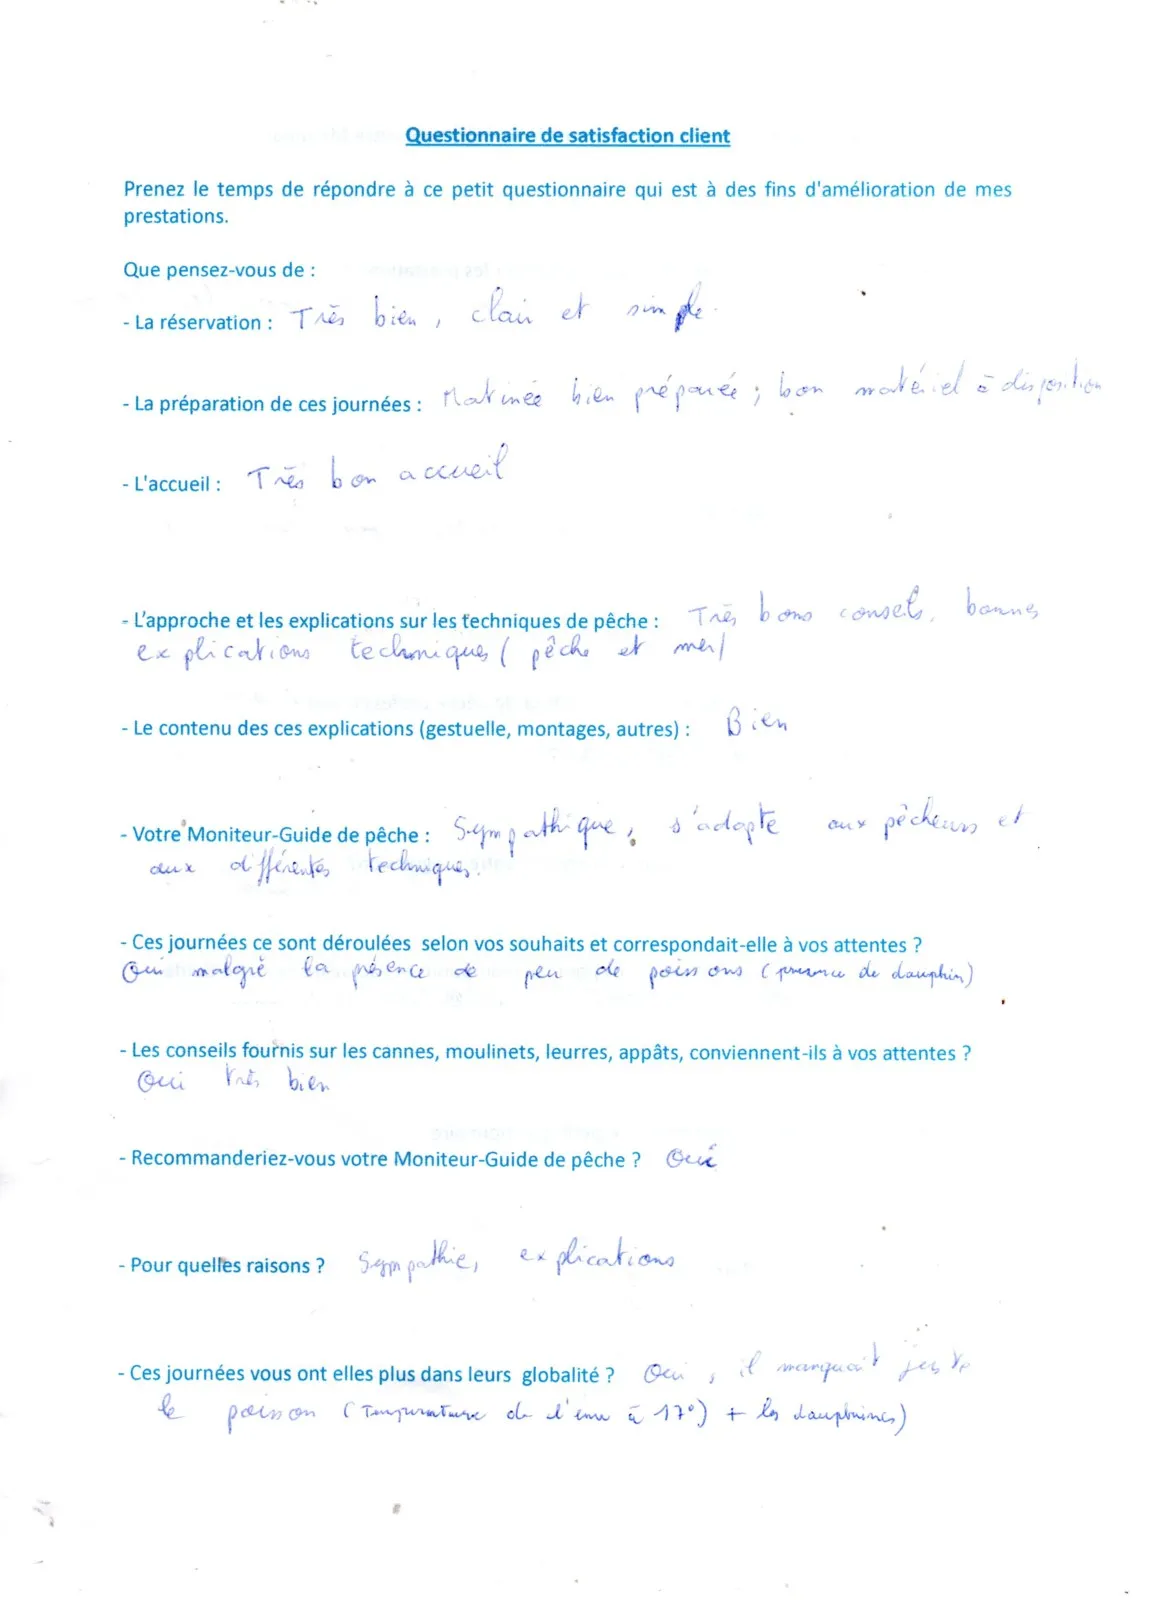 Questionnaire de satisfaction client
Prenez le temps de répondre à ce petit questionnaire qui est à des fins d'amélioration de mes
prestations.
Que pensez-vous de :
- La réservation : Très bien, clair et simple.
- La préparation de ces journées : Matinée bien préparée ; bon matériel à disposition
- L'accueil : Très bon accueil
- L'approche et les explications sur les techniques de pêche : Très bons conseils, bonnes
explications techniques ( pêche et mer)
- Le contenu des ces explications (gestuelle, montages, autres) : Bien
- Votre Moniteur-Guide de pêche : Sympathique, s'adapte aux pêcheurs et
aux différentes techniques.
- Ces journées ce sont déroulées selon vos souhaits et correspondait-elle à vos attentes ?
Oui malgré la présence de peu de poissons (présence de dauphin)
- Les conseils fournis sur les cannes, moulinets, leurres, appâts, conviennent-ils à vos attentes ?
Oui très bien
- Recommanderiez-vous votre Moniteur-Guide de pêche ? Oui
- Pour quelles raisons ? Sympathie, explications
- Ces journées vous ont elles plus dans leurs globalité ? Oui, il manquait juste
le poisson (Température de l'eau à 17°) + les dauphins)